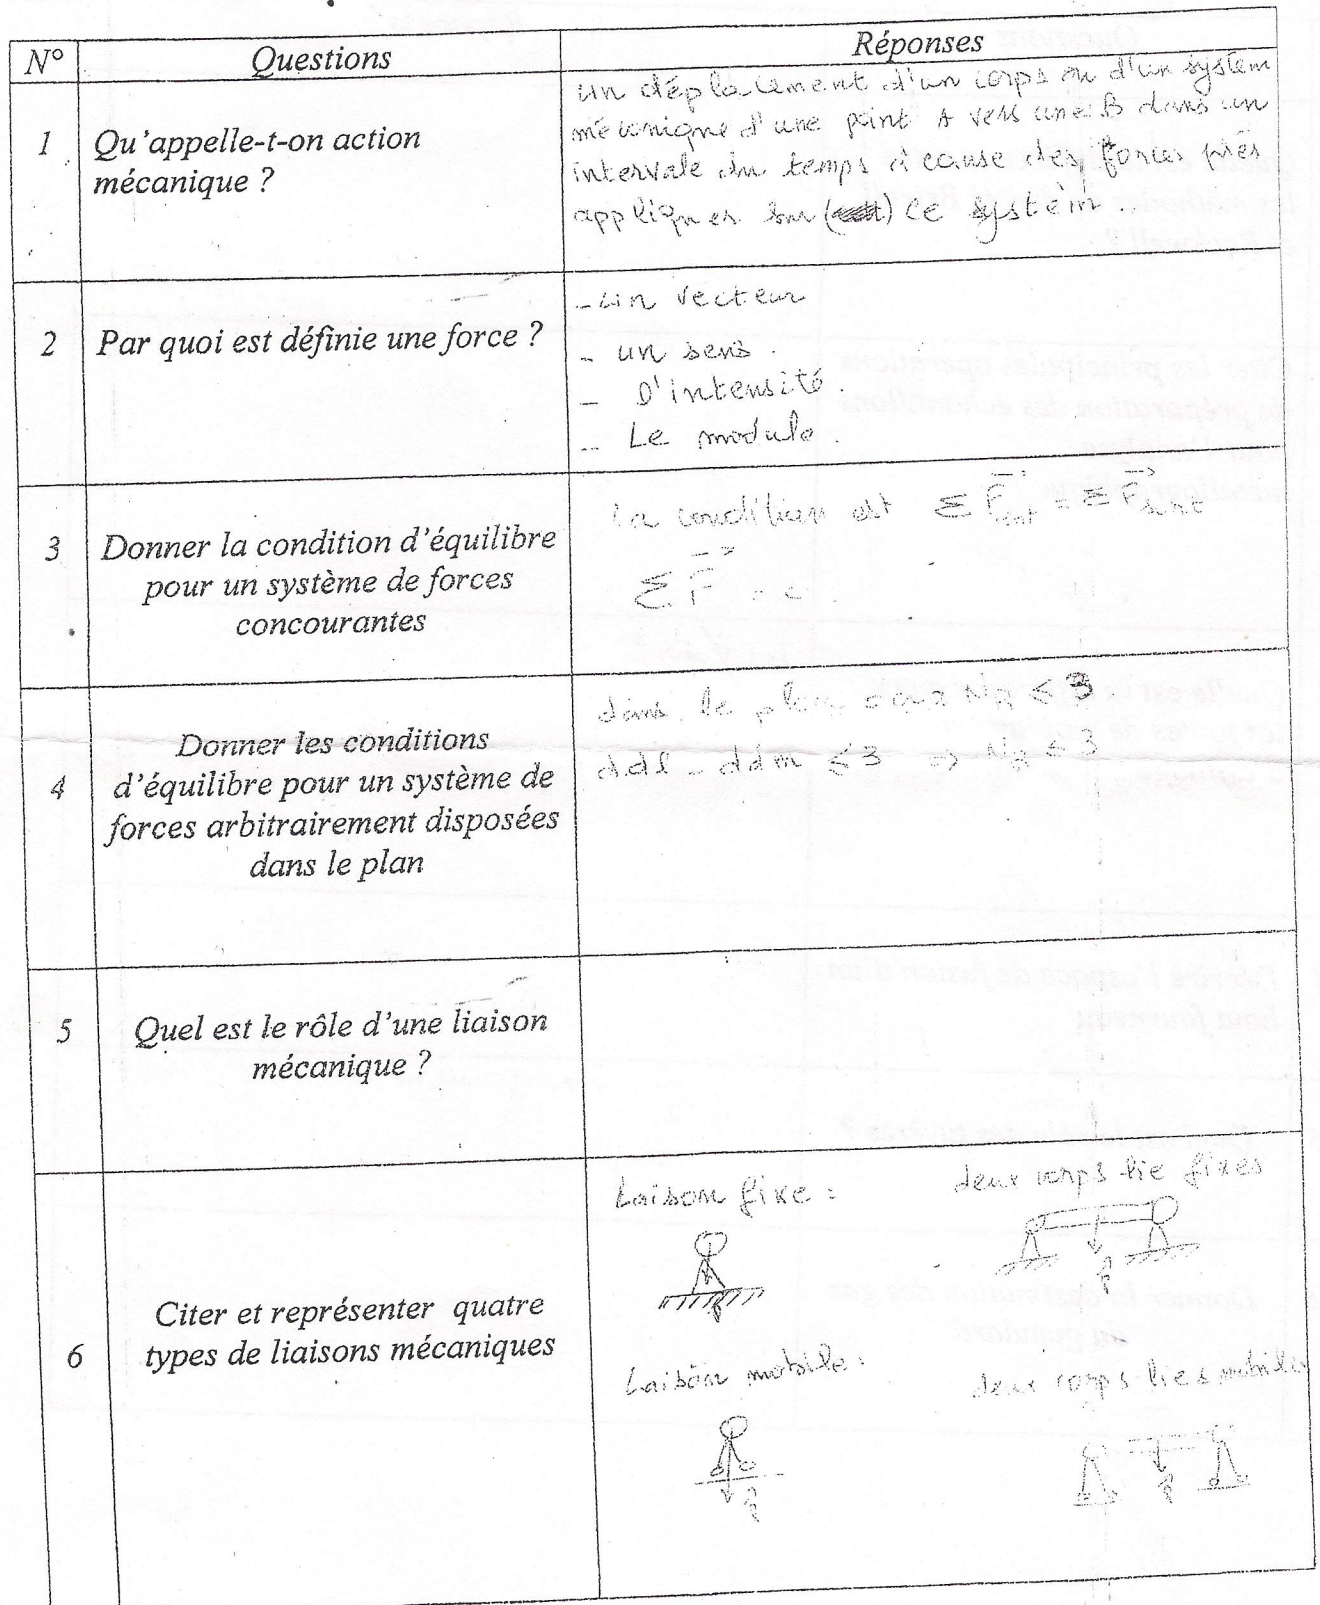 N° Questions Réponses
1 Qu'appelle-t-on action
mécanique ?
un déplacement d'un corps ou d'un systèm
mécanique d'une point A vers une B dans un
intervale du temps à cause des forces
appliquer sur ce systèm.
2 Par quoi est définie une force ?
- un vecteur
- un sens.
- D'intensité.
- Le module.
3 Donner la condition d'équilibre
pour un système de forces
concourantes
la condition est Σ F = Σ F
Σ F
4 Donner les conditions
d'équilibre pour un système de
forces arbitrairement disposées
dans le plan
dans le plan ≤ 3
ddl - ddm ≤ 3 ⇒ ≤ 3
5 Quel est le rôle d'une liaison
mécanique ?
6 Citer et représenter quatre
types de liaisons mécaniques
Laison fixe : deux corps lie fixes
Laison mobile : deux corps lies mobiles